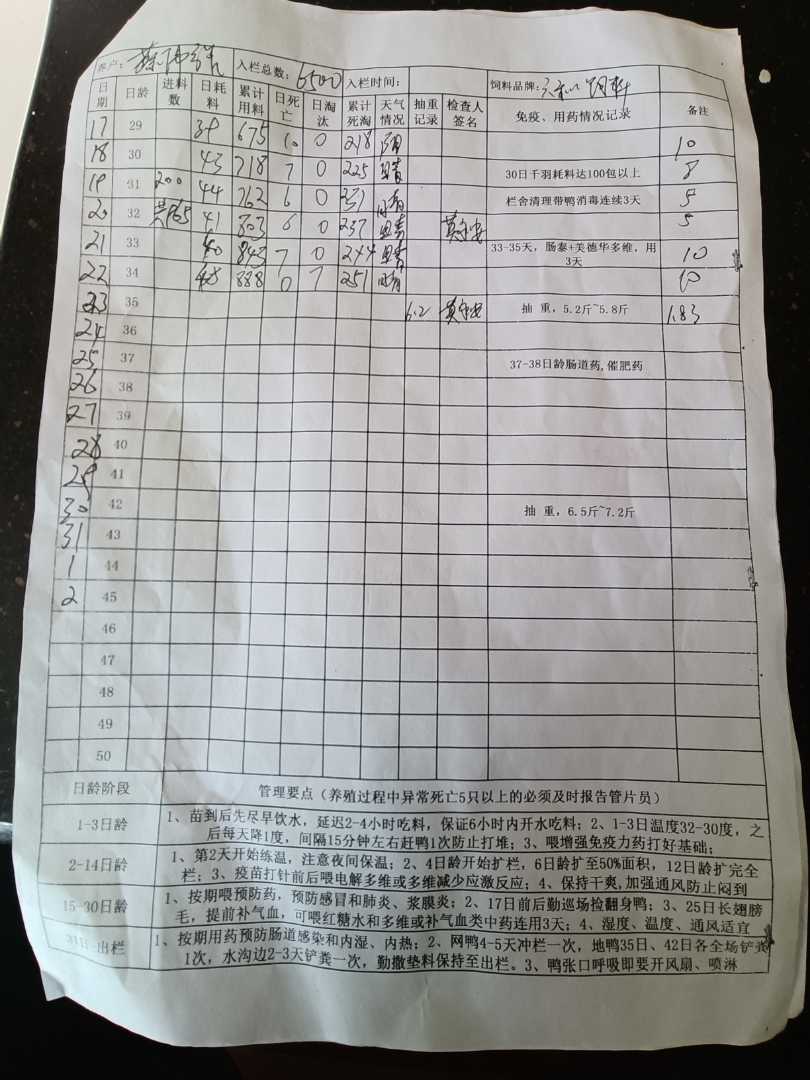 客户： 入栏总数：6500 入栏时间： 饲料品牌：
日期 日龄 进料数 日耗料 累计用料 日死亡 日淘汰 累计死淘 天气情况 抽重记录 检查人签名 免疫、用药情况记录 备注
17 29 39 675 10 0 218 10
18 30 43 718 7 0 225 晴 30日千羽耗料达100包以上 8
19 31 200 44 762 6 0 231 晴 栏舍清理带鸭消毒连续3天 5
20 32 41 803 6 0 237 晴 5
21 33 40 843 7 0 244 晴 33-35天，肠泰+美德华多维，用3天 10
22 34 45 888 0 7 251 晴 10
23 35 6.2 抽 重，5.2斤~5.8斤 1.83
24 36
25 37 37-38日龄肠道药,催肥药
26 38
27 39
28 40
29 41
30 42 抽 重，6.5斤~7.2斤
31 43
1 44
2 45
46
47
48
49
50
日龄阶段 管理要点（养殖过程中异常死亡5只以上的必须及时报告管片员）
1-3日龄 1、苗到后先尽早饮水，延迟2-4小时吃料，保证6小时内开水吃料；2、1-3日温度32-30度，之
后每天降1度，间隔15分钟左右赶鸭1次防止打堆；3、喂增强免疫力药打好基础；
2-14日龄 1、第2天开始练温，注意夜间保温；2、4日龄开始扩栏，6日龄扩至50%面积，12日龄扩完全
栏；3、疫苗打针前后喂电解多维或多维减少应激反应；4、保持干爽,加强通风防止闷到
15-30日龄 1、按期喂预防药，预防感冒和肺炎、浆膜炎；2、17日前后勤巡场捡翻身鸭；3、25日长翅膀
毛，提前补气血，可喂红糖水和多维或补气血类中药连用3天；4、湿度、温度、通风适宜
31日-出栏 1、按期用药预防肠道感染和内湿、内热；2、网鸭4-5天冲栏一次，地鸭35日、42日各全场铲粪
1次，水沟边2-3天铲粪一次，勤撒垫料保持至出栏。3、鸭张口呼吸即要开风扇、喷淋